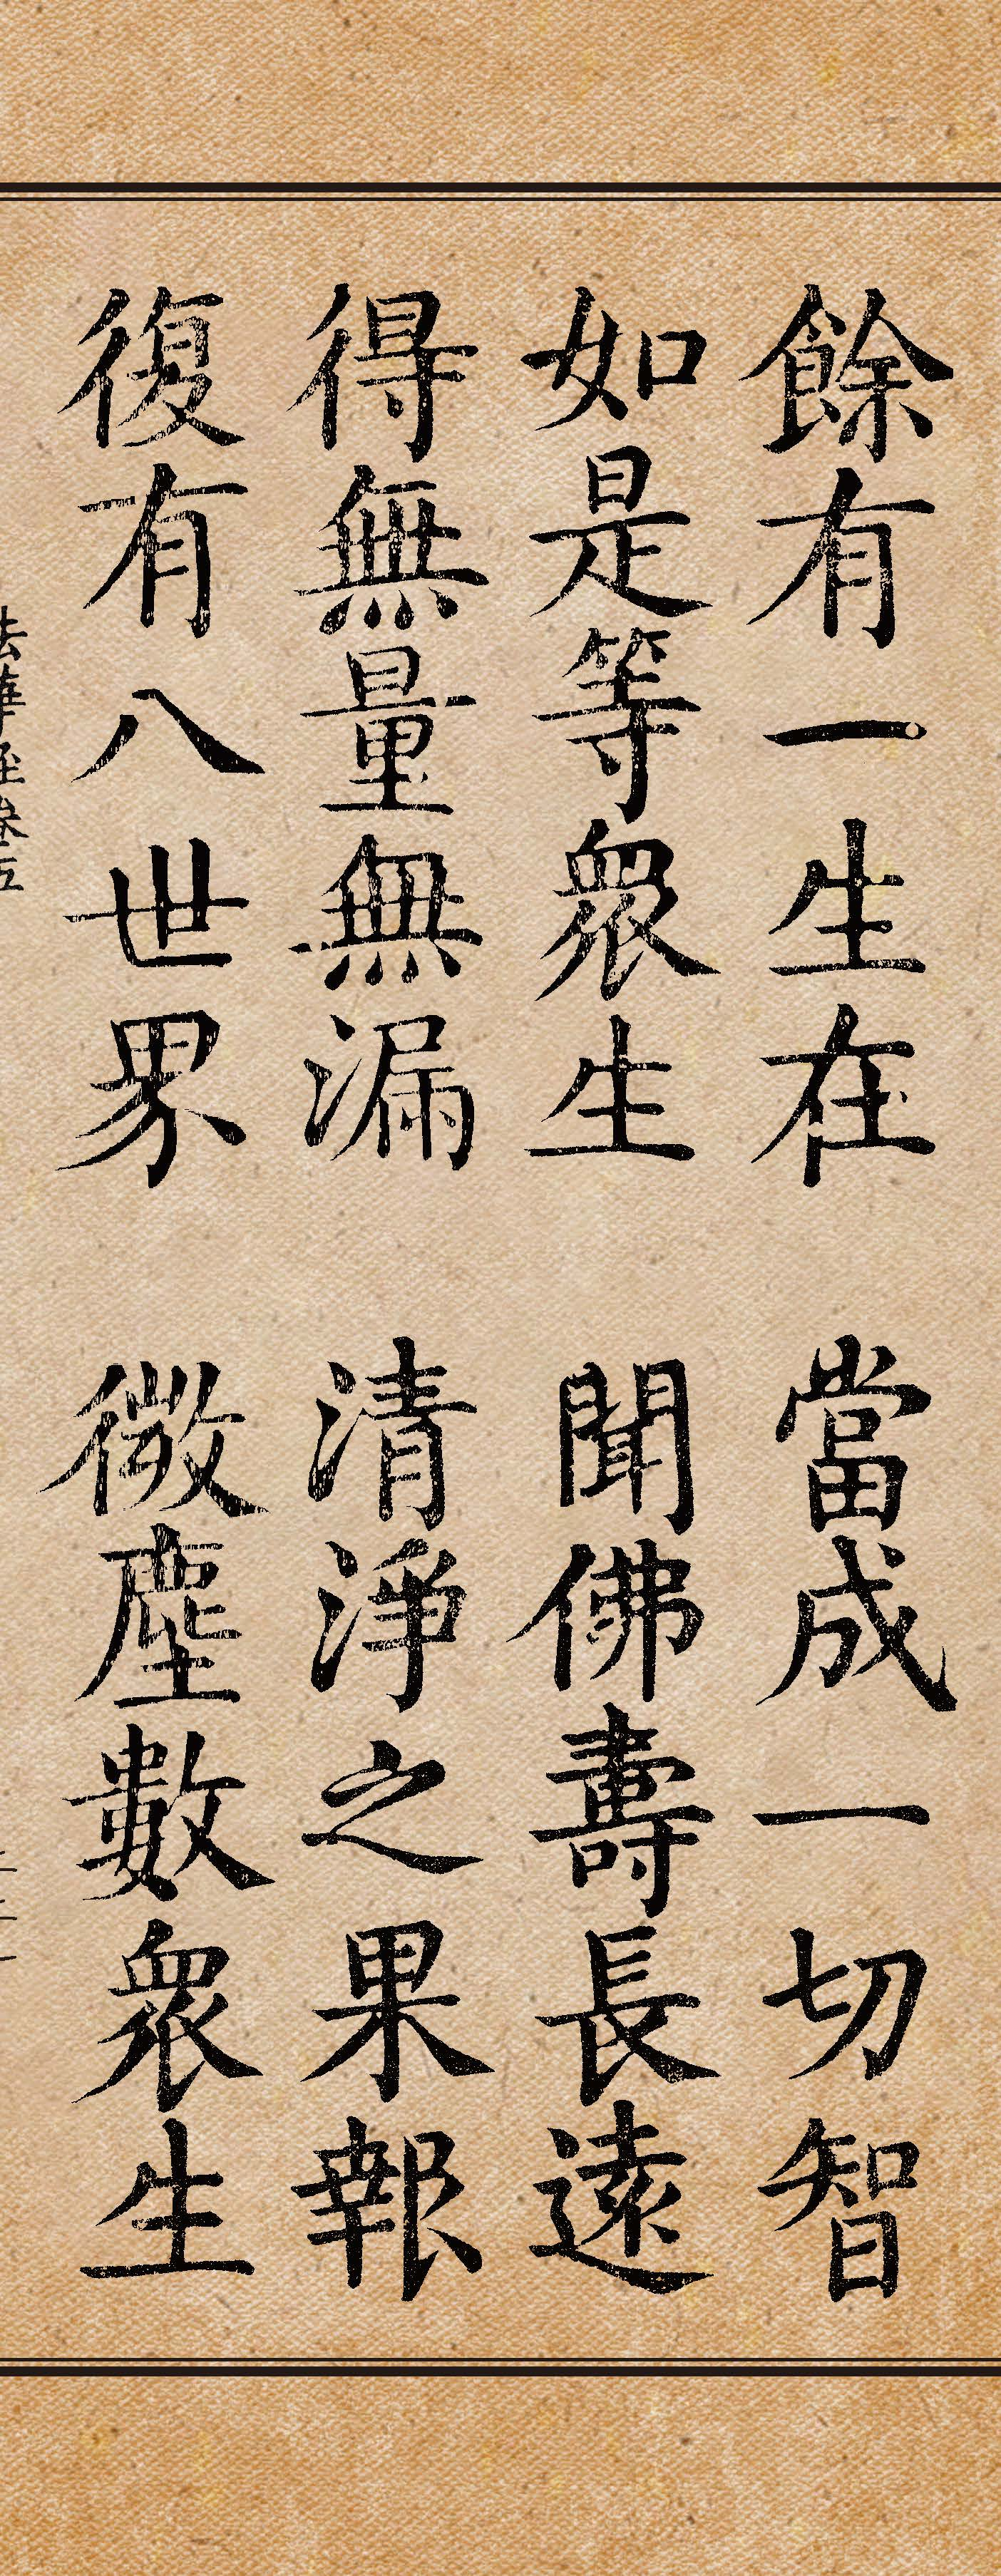 餘有一生在 當成一切智
如是等衆生 聞佛壽長遠
得無量無漏 清淨之果報
復有八世界 微塵數衆生
法華經卷五